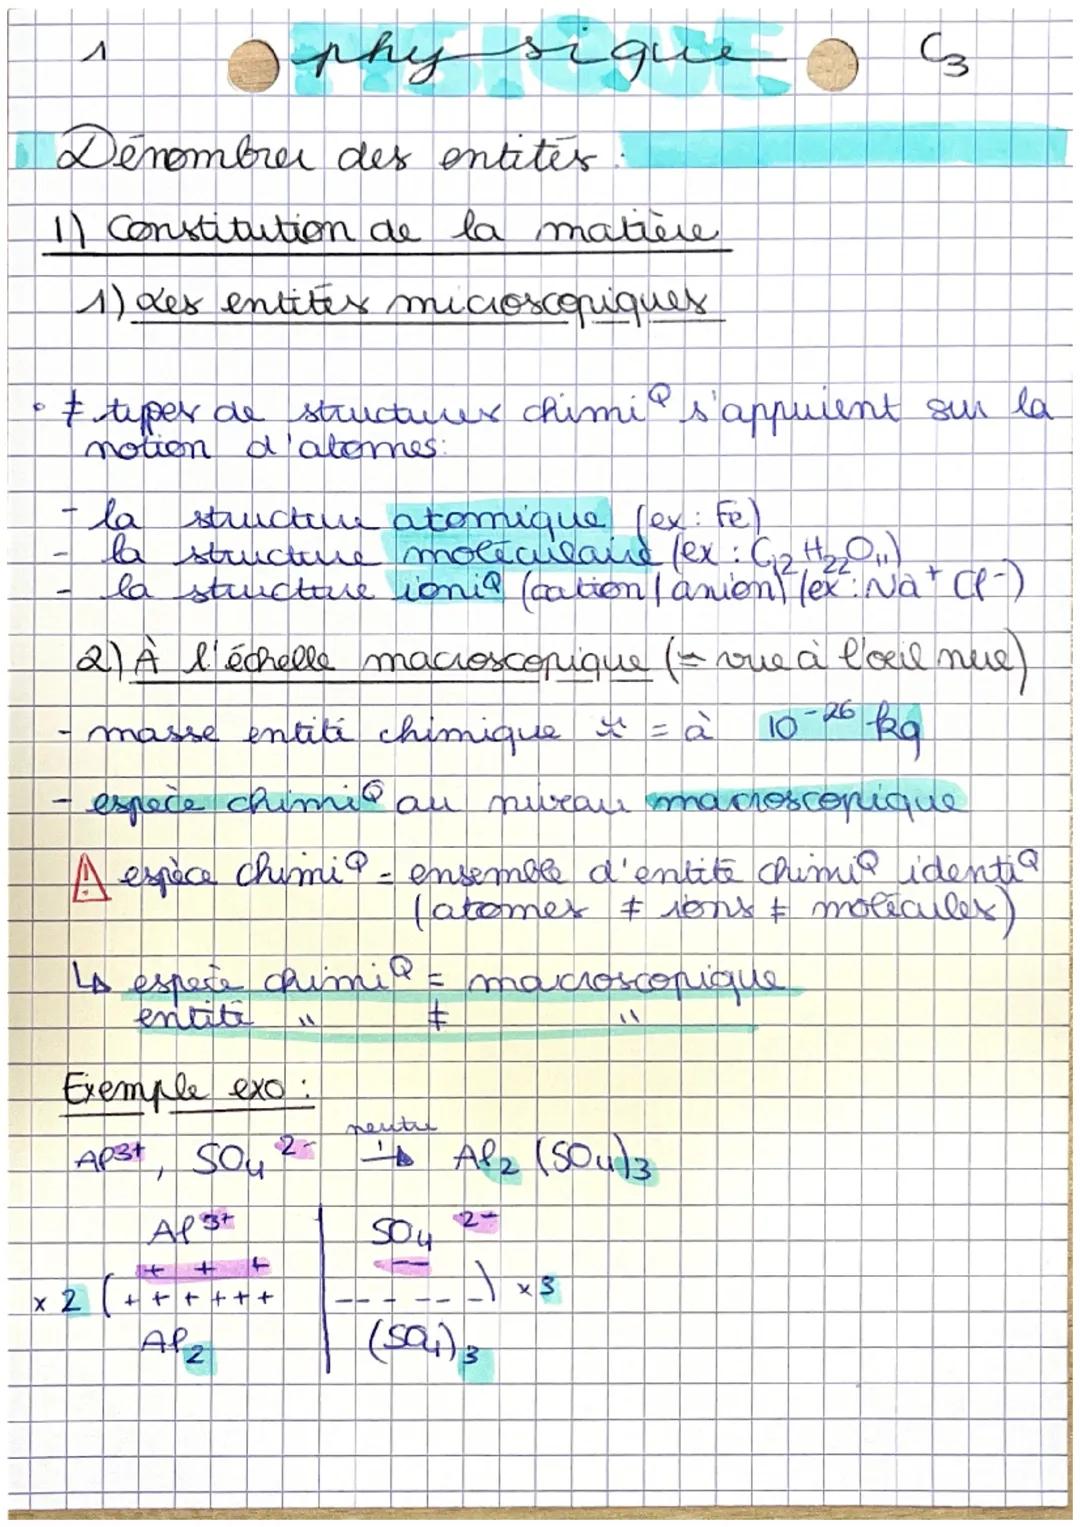 1 physique C3
Dénombrer des entités :
1) Constitution de la matière
1) Les entités microscopiques
• ≠ types de structures chimiQ s'appuient sur la
notion d'atomes:
- la structure atomique (ex: Fe)
- la structure moléculaire (ex : C₁₂H₂₂O₁₁)
- la structure ioniQ (cation/anion) (ex : Na⁺ Cl⁻)
2) À l'échelle macroscopique (= vue à l'œil nue)
- masse entité chimique = à 10⁻²⁶ kg
- espèce chimiQ au niveau macroscopique
⚠ espèce chimiQ = ensemble d'entité chimiQ identiQ
(atomes ≠ ions ≠ molécules)
↳ espèce chimiQ = macroscopique
entité " ≠ "
Exemple exo :
neutre
Al³⁺, SO₄²⁻ → Al₂(SO₄)₃
Al³⁺ | SO₄²⁻
+ + + | - -
x 2 ( + + + + + + | - - - - - - ) x 3
Al₂ | (SO₄)₃